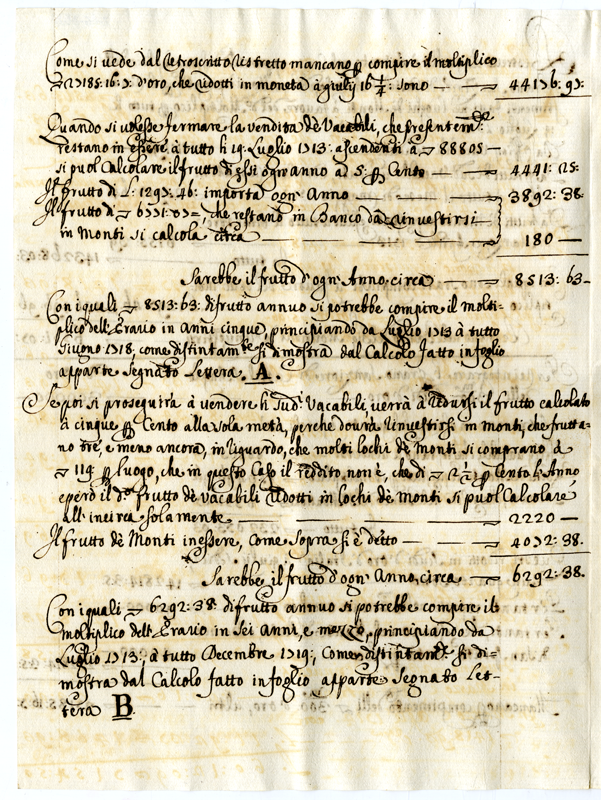 Come si vede dal retroscritto ristretto mancano p compire il moltiplico
di 27185: 16: 7: d'oro, che ridotti in moneta à giulij 16 1/4: sono — — 44176. 93:
Quando si volesse fermare la vendita de Vacabili, che presentem.te
restano in essere à tutto li 19. Luglio 1713: ascendenti à 88805 —
si puol Calcolare il frutto d'essi ogn'anno à 5: p Cento — — 4441: 25:
Il frutto di L: 1297: 46: importa ogn'Anno — — 3892: 38.
Il frutto di 6771: 07 =, che restano in Banco da rinvestirsi
in Monti si calcola circa — — 180 —
Sarebbe il frutto d'ogn'Anno, circa — 8513: 63 —
Con i quali 8513: 63: di frutto annuo si potrebbe compire il molti=
plico dell'Erario in Anni cinque, principiando da Luglio 1713 à tutto
Giugno 1718, come distintam.te si dimostra dal Calcolo fatto in foglio
apparte Segnato Lettera. A.
Se poi si proseguirà à vendere li Sud.i Vacabili, verrà à ridursi il frutto calcolato
à cinque p Cento alla sola metà, perche dovrà rinvestirsi in Monti, che frutta=
no tre, e meno ancora, in riguardo, che molti lochi de Monti si comprano à
119 p luogo, che in questo Caso il reddito, non è, che di 2 1/2 p Cento l'Anno
e però il d.o frutto de vacabili ridotti in lochi de Monti si puol Calcolare
all'incirca solamente — — 2220 —
Il frutto de Monti in essere, Come sopra si è detto — — 4072: 38.
Sarebbe il frutto d'ogn'Anno, circa — 6292: 38.
Con i quali 6292: 38: di frutto annuo si potrebbe compire il
moltiplico dell'Erario in Sei Anni, e mezzo, principiando da
Luglio 1713:, à tutto Decembre 1719:, Come distintam.te si di=
mostra dal Calcolo fatto in foglio apparte Segnato Let=
tera B